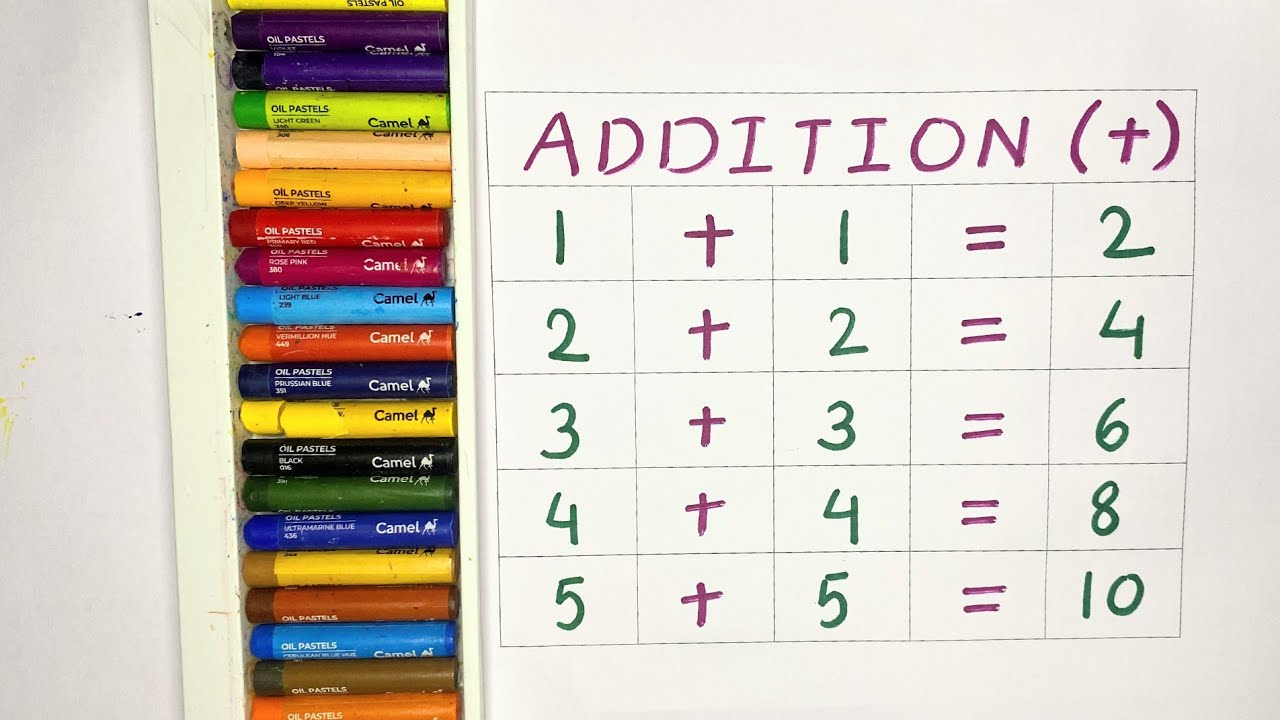 OIL PASTELS
OIL PASTELS
Camel
OIL PASTELS
OIL PASTELS
LIGHT GREEN
Camel
Camel
OIL PASTELS
DEEP YELLOW
OIL PASTELS
PRIMARY RED
Camel
OIL PASTELS
ROSE PINK
380
Camel
OIL PASTELS
LIGHT BLUE
239
Camel
OIL PASTELS
VERMILLION HUE
449
Camel
OIL PASTELS
PRUSSIAN BLUE
351
Camel
Camel
OIL PASTELS
BLACK
016
Camel
Camel
OIL PASTELS
ULTRAMARINE BLUE
436
Camel
Camel
OIL PASTELS
OIL PASTELS
CERULEAN BLUE HUE
Camel
OIL PASTELS
OIL PASTELS
ADDITION (+)
1 + 1 = 2
2 + 2 = 4
3 + 3 = 6
4 + 4 = 8
5 + 5 = 10